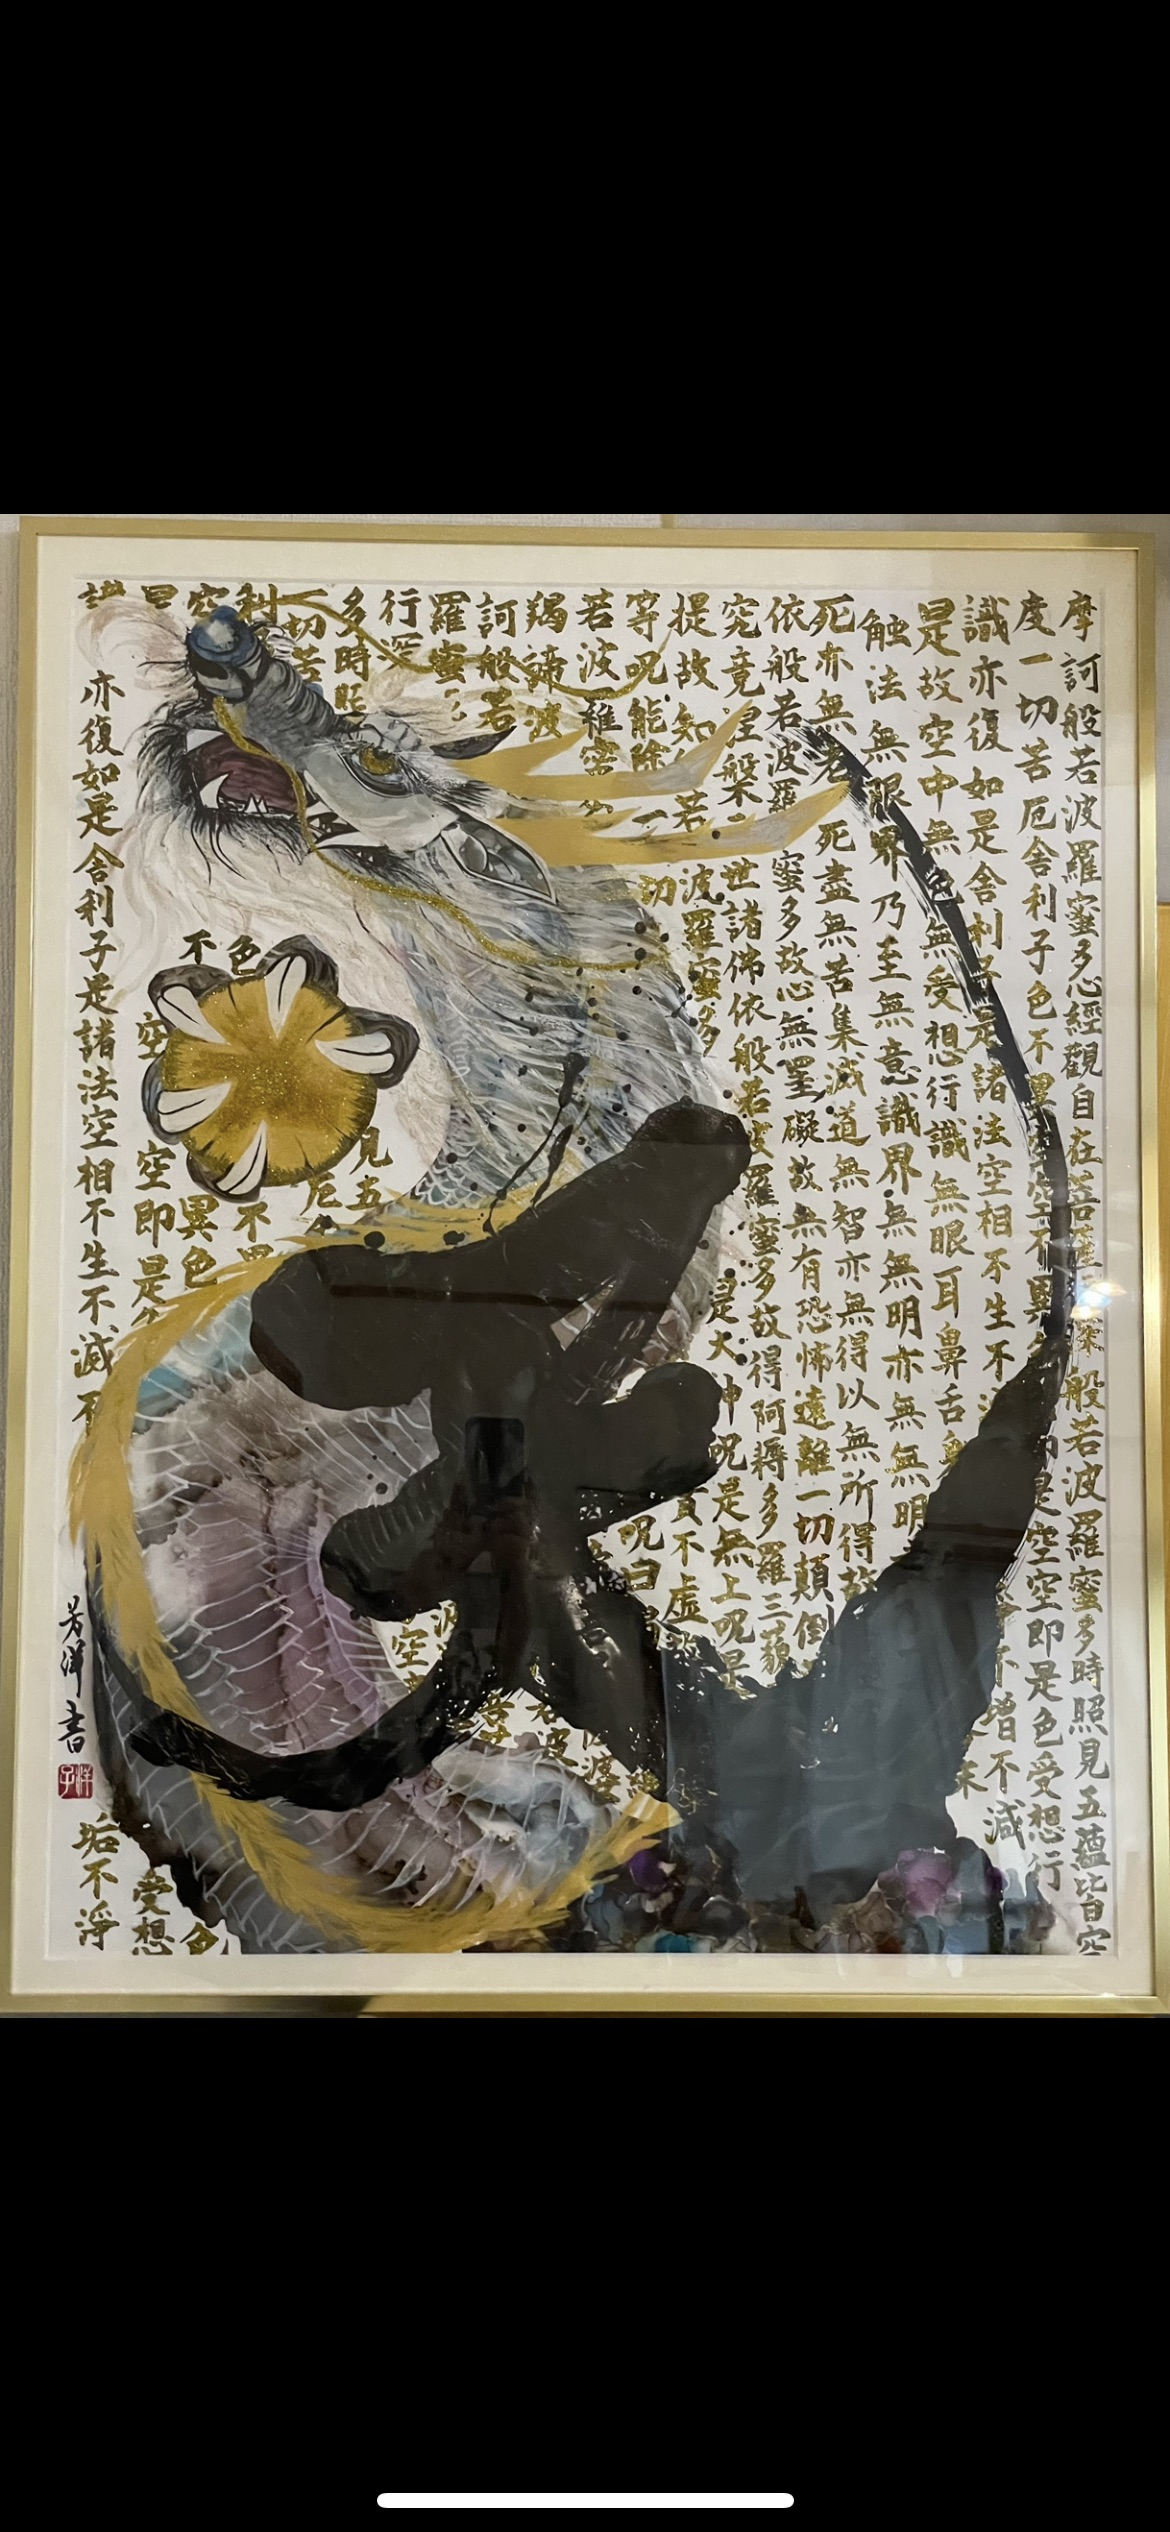 摩訶般若波羅蜜多心經觀自在菩薩深般若波羅蜜多時照見五蘊皆空
度一切苦厄舍利子色不異空空不異是空空即是色受想行
識亦復如是舍利子是諸法空相不生不不增不減
是故空中無色無受想行識無眼耳鼻舌身
触法無眼界乃至無意識界無無明亦無無明
死亦無老死盡無苦集滅道無智亦無得以無所得故
依般若波羅蜜多故心無罣礙故無有恐怖遠離一切顛倒
究竟涅槃三世諸佛依般若波羅蜜多故得阿耨多羅三藐
提故知若波羅蜜多是大神呪是無上呪是
等呪能除一切實不虛故
若波羅蜜呪曰羯
羯諦波
訶般若
羅蜜
行深
多時照見五
一切苦厄
利不異
空色異色色
是不空空即是受想
識亦復如是舍利子是諸法空相不生不滅不垢不淨
芳洋書
洋子